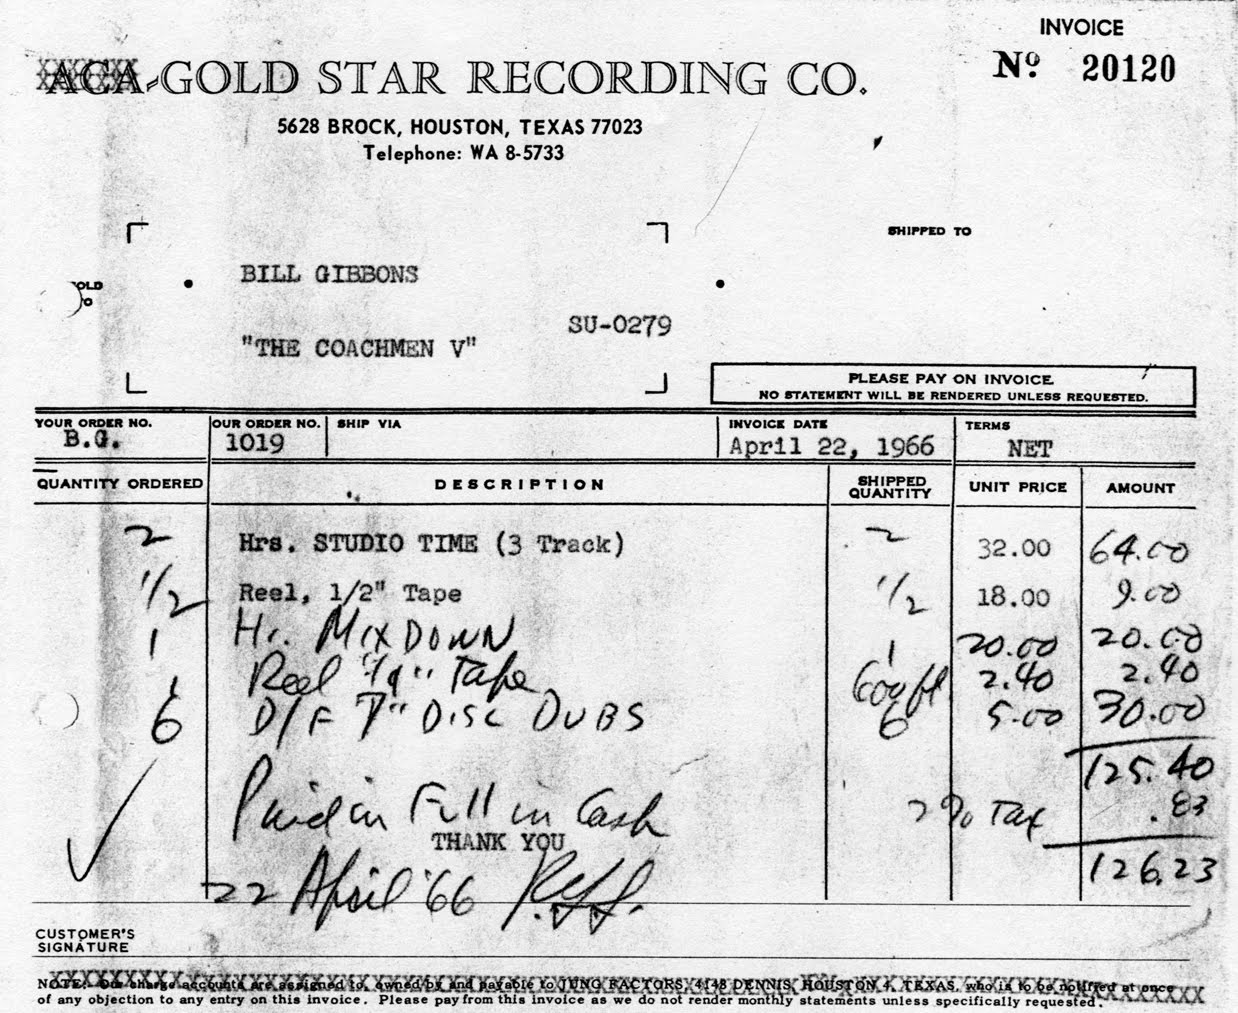 INVOICE
Nº 20120
ACA-GOLD STAR RECORDING CO.
5628 BROCK, HOUSTON, TEXAS 77023
Telephone: WA 8-5733
SHIPPED TO
OLD
TO
BILL GIBBONS
SU-0279
"THE COACHMEN V"
PLEASE PAY ON INVOICE
NO STATEMENT WILL BE RENDERED UNLESS REQUESTED.
YOUR ORDER NO. OUR ORDER NO. SHIP VIA INVOICE DATE TERMS
B.G. 1019 April 22, 1966 NET
QUANTITY ORDERED DESCRIPTION SHIPPED QUANTITY UNIT PRICE AMOUNT
2 Hrs. STUDIO TIME (3 Track) 2 32.00 64.00
1/2 Reel, 1/2" Tape 1/2 18.00 9.00
1 Hr. MIXDOWN 1 20.00 20.00
1 Reel 1/4" Tape 600 ft 2.40 2.40
6 D/F 7" DISC DUBS 6 5.00 30.00
125.40
Paid in Full in Cash 2% Tax .83
THANK YOU
126.23
22 April '66
CUSTOMER'S
SIGNATURE
NOTE: Our charge accounts are assigned to, owned by and payable to JUNG FACTORS, 4148 DENNIS, HOUSTON 4, TEXAS, who is to be notified at once
of any objection to any entry on this invoice. Please pay from this invoice as we do not render monthly statements unless specifically requested.